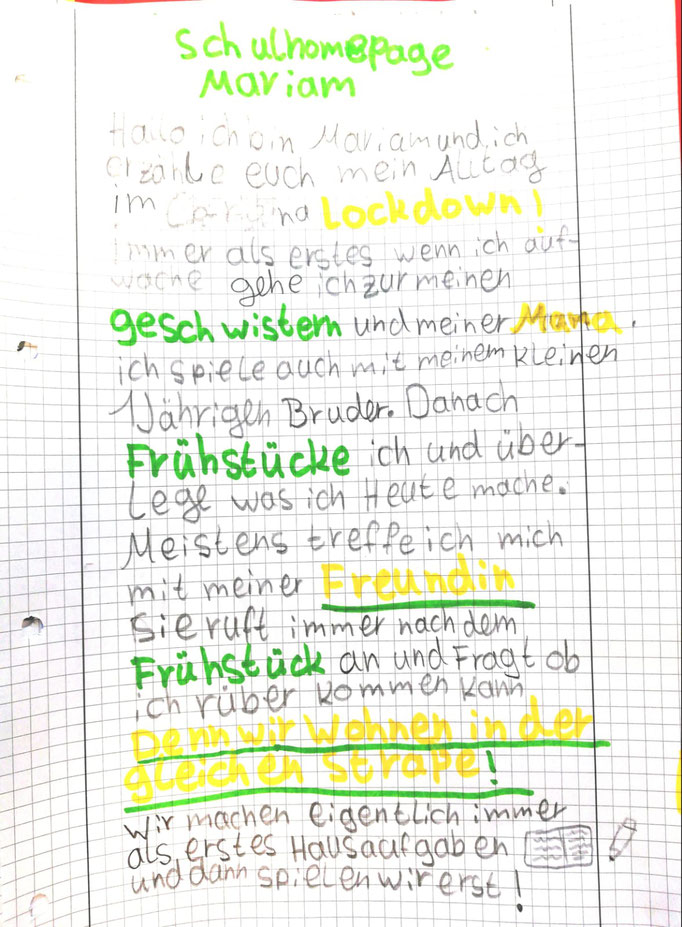 Schulhomepage
Mariam
Hallo ich bin Mariam und ich
erzähle euch mein Alltag
im Corona Lockdown!
immer als erstes wenn ich auf-
wache gehe ich zur meinen
geschwistern und meiner Mama.
ich spiele auch mit meinem kleinen
1 Jährigen Bruder. Danach
Frühstücke ich und über-
lege was ich Heute mache.
Meistens treffe ich mich
mit meiner Freundin
Sie ruft immer nach dem
Frühstück an und Fragt ob
ich rüber kommen kann
Denn wir Wohnen in der
gleichen Straße!
Wir machen eigentlich immer
als erstes Hausaufgaben
und dann spielen wir erst!